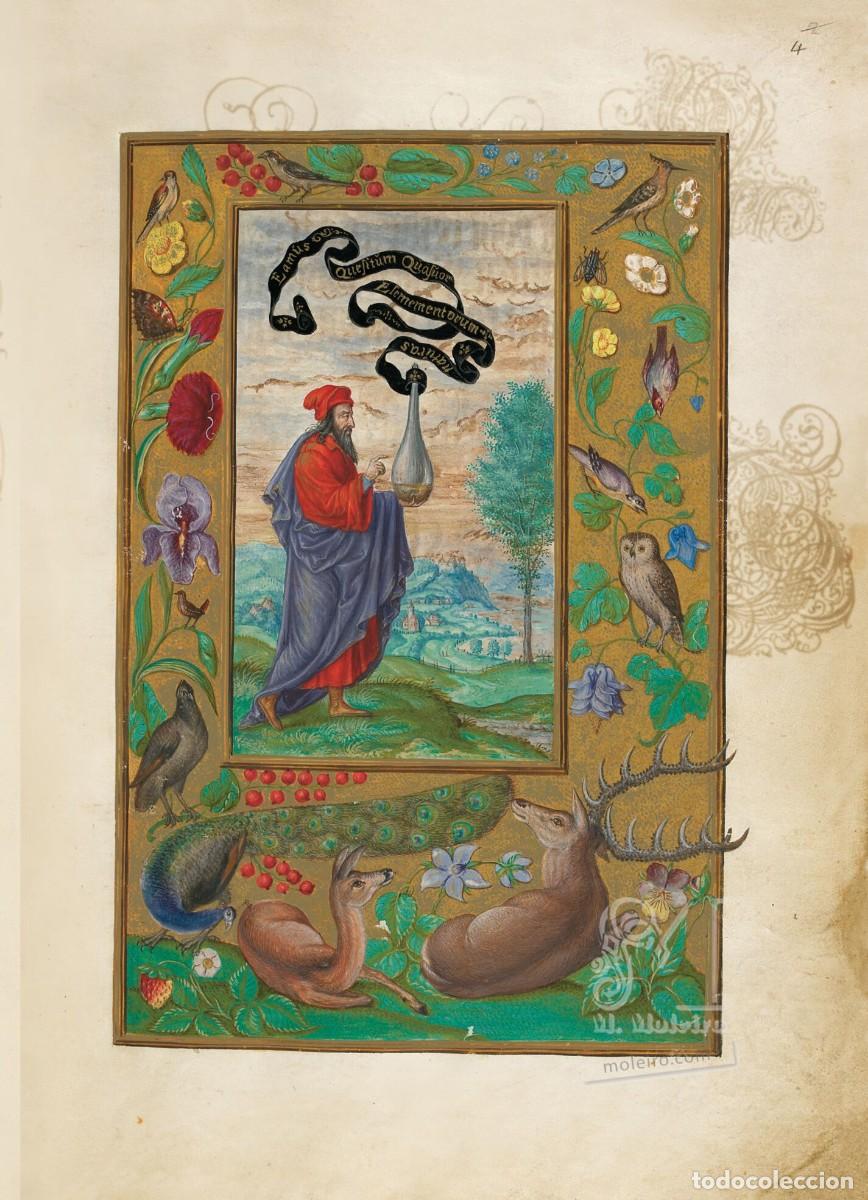 2
4
Eamus
Quesitum Quatuor
Elemementorum
naturas
M. Moleiro
moleiro.com
todocoleccion